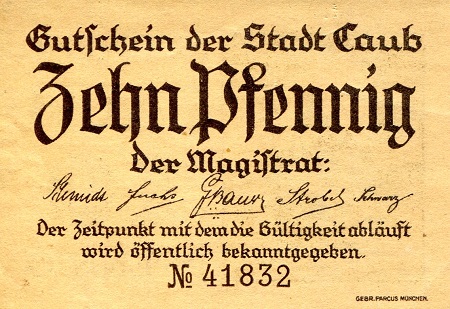 Gutschein der Stadt Caub
Zehn Pfennig
Der Magistrat:
Schmidt Fuchs Strobel Schwarz
Der Zeitpunkt mit dem die Gültigkeit abläuft
wird öffentlich bekanntgegeben.
№ 41832
GEBR. PARCUS MÜNCHEN.